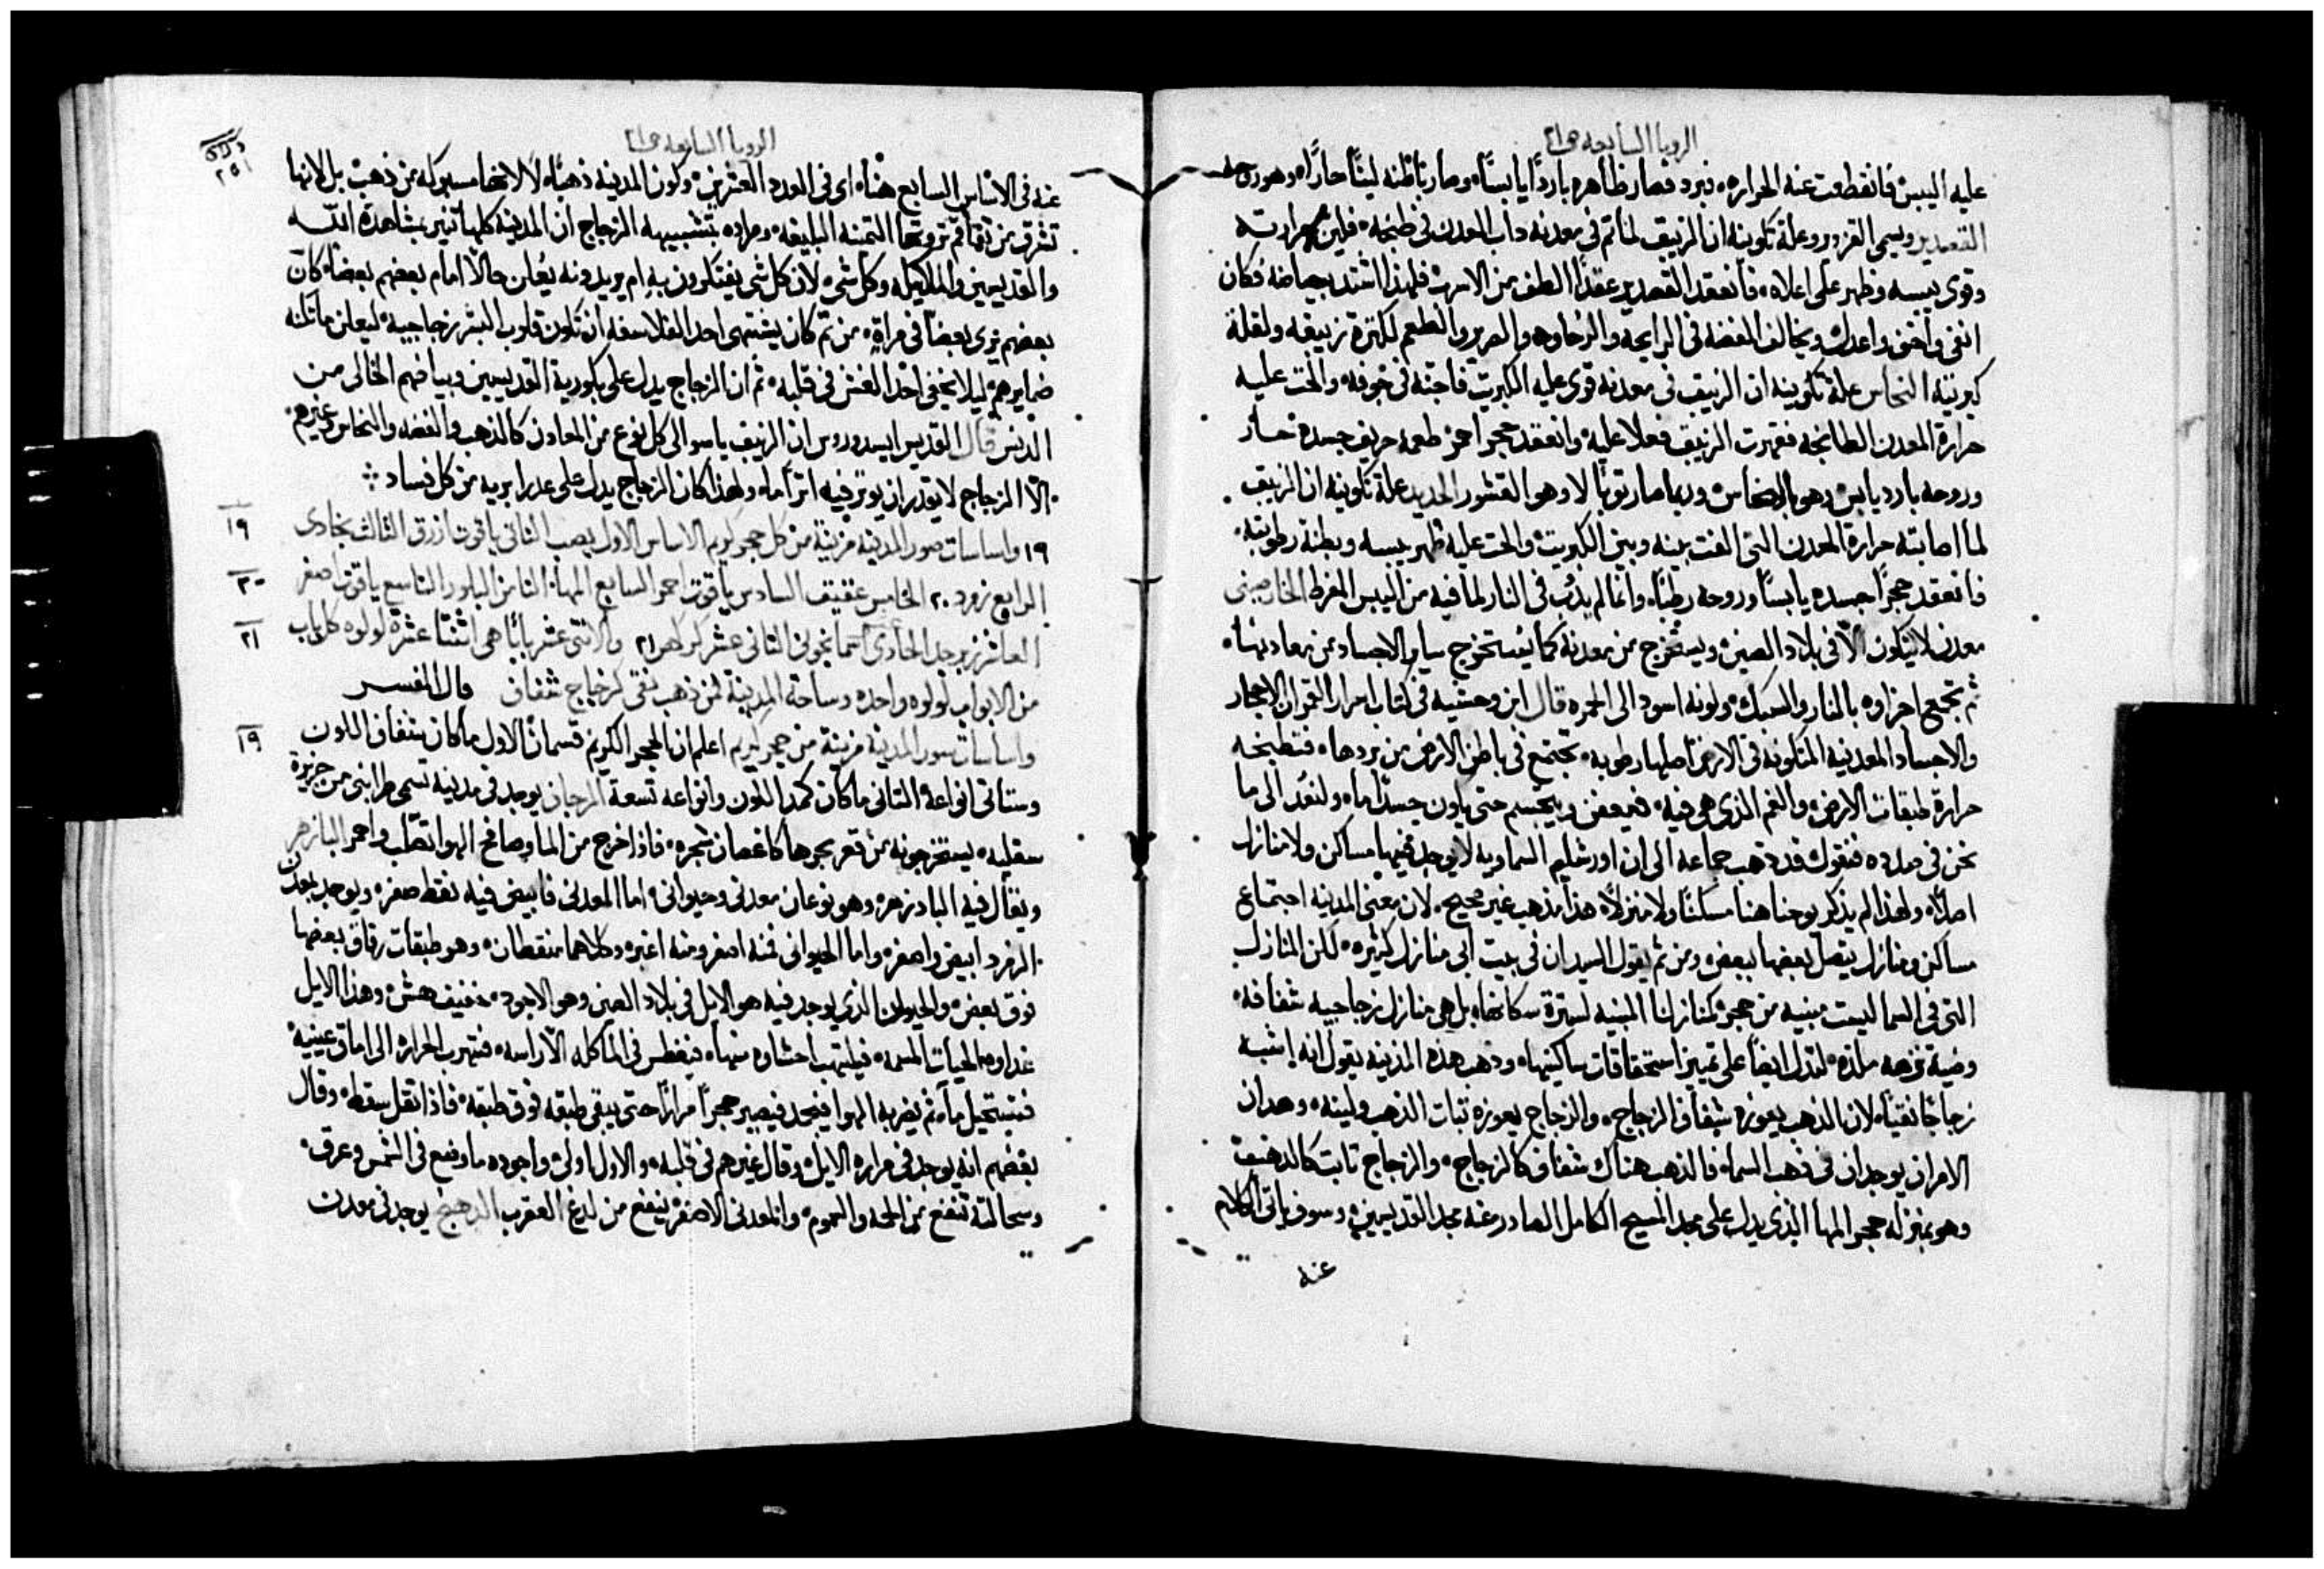 الرويا السابعه ص٢١
عليه اليبس فانقطعت عنه الحراره، فبرد فصار ظاهره باردًا يابسًا، وصار باطنه لينًا حارًا، وهو
القصدير ويسمى القزدير وعلة تكوينه ان الزيبق لما تم في معدنه داب المعدن في طبخه، فلين حرارته
وقوى يبسه وظهر على اعلاه، فانعقد القصدير عقدًا الطف من الاسرب فلهذا اشتد بياضه فكان
انقى واخف واعدل ويخالف الفضه في الرايحه والرخاوه والصرير والطعم لكثرة زيبقه ولقلة
كبريته النحاس علة تكوينه ان الزيبق في معدنه قوى عليه الكبريت فاجنه في جوفه، والحت عليه
حرارة المعدن الطابخه فقهرت الزيبق فعلا عليه، وانعقد حجر احمر طعمه حريف جسده حار
وروحه بارد يابس وهو النحاس، وربما صار توبالا وهو القشور الحديد علة تكوينه ان الزيبق
لما اصابته حرارة المعدن التي الفت بينه وبين الكبريت، والحت عليه ظهر يبسه وبطنه رطوبته،
فانعقد حجرًا جسده يابسًا وروحه رطبًا، وانما لم يذب في النار لما فيه من اليبس المفرط الخارصيني
معدن لا يتكون الا في بلاد الصين، ويستخرج من معدنه كما يستخرج ساير الاجساد من معادنها،
ثم تجمع اجزاوه بالنار والسبك، ولونه اسود الى الحمره قال ابن وحشيه في كتاب اسرار القمر ان الاحجار
والاجساد المعدنيه المتكونه في الارض اصلها رطوبه، تجتمع في باطن الارض من بردها، فتطبخه
حرارة طبقات الارض، والغم الذي هي فيه، فيعفن ويتجسم حتى يكون جسدًا ما، ولنعد الى ما
نحن في صدده فنقول قد ذهب جماعه الى ان اورشليم السماويه لا يوجد فيها مساكن ولا منازل
اصلًا، ولهذا لم يذكر يوحنا هنا مسكنًا ولا منزلًا، هذا مذهب غير صحيح، لان معنى المدينه اجتماع
مساكن ومنازل يتصل بعضها ببعض، ومن ثم يقول السيد ان في بيت ابي منازل كثيره، لكن المنازل
التي في السما ليست مبنيه من حجر كمنازلنا المبنيه لسترة سكانها، بل هي منازل زجاجيه شفافه،
وضية نزهه ملذه، لتدل ايضًا على تمييز استحقاقات ساكنيها، وذهب هذه المدينه يقول انه اشبه
زجاجًا نقيًا، لان الذهب يعوزه شفاف الزجاج، والزجاج يعوزه ثبات الذهب ولينه، وهدان
الامران يوجدان في ذهب السما، فالذهب هناك شفاف كالزجاج، والزجاج ثابت كالذهب
وهو بمنزلة حجر المها الذي يدل على مجد المسيح الكامل الصادر عنه مجد القديسين، وسوف ياتي الكلام
عنه
الرويا السابعه ص٢١
٢٥١
عنه في الاساس السابع هنا، اي في العدد العشرين، وكون المدينه ذهبًا، لا لانها مسبوكه من ذهب، بل لانها
تشرق من ثم ثروتها الثمينه البليغه، ومراده بتشبيهه الزجاج ان المدينه كلها تنير بمشاهدة الله
والقديسين والملايكه وكل شي، لان كل شي يفتكرون به ام يريدونه يُعلن حالًا امام بعضهم بعضًا، كان
بعضهم يرى بعضًا في مراة، من ثم كان يشتهي احد الفلاسفه ان تكون قلوب البشر زجاجيه، ليعلن ما تكنه
ضمايرهم ليلا يخفي احد الغش في قلبه، ثم ان الزجاج يدل على بكورية القديسين وبياضهم الخالي من
الدنس قال القديس ايسيدوروس ان الزيبق ياسو الى كل نوع من المعادن كالذهب والفضه والنحاس وغيرهم،
الا الزجاج لا يقدر ان يوثر فيه اثرًا ما، ولهذا كان الزجاج يدل على عدرا بريه من كل فساد ؞
١٩ واساسات صور المدينه مزينة من كل حجر كريم الاساس الاول يصب الثاني ياقوت ازرق الثالث بخادى
١٩
الرابع زمرد ٢٠ الخامس عقيق السادس ياقوت احمر السابع المها، الثامن البلور التاسع ياقوت اصفر
٢٠
العاشر زبرجد الحادي اسمانجوني الثاني عشر كركهن ٢١ والاثنى عشر بابًا هي اثنتا عشرة لولوه كل باب
٢١
من الابواب لولوه واحده وساحة المدينة من ذهب نقي كزجاج شفاف قال المفسر
واساسات سور المدينه مزينة من حجر كريم اعلم ان الحجر الكريم قسمان الاول ما كان شفاف اللون
١٩
وستاتي انواعه، الثاني ما كان كمد اللون وانواعه تسعة المرجان يوجد في مدينه تسمى طرابني من جزيرة
سقليه، يستخرجونه من قعر بحرها كاغصان شجره، فاذا خرج من الما وصافح الهوا تصلب واحمر البازهر
ويقال فيه البادزهر، وهو نوعان معدني وحيواني، اما المعدني فابيض فيه نقط صفر، ويوجد بمعدن
الزمرد ابيض واصفر، واما الحيواني فمنه اصفر ومنه اغبر، وكلاهما منقطان، وهو طبقات رقاق بعضها
فوق بعض، والحيوان الذي يوجد فيه هو الايل في بلاد الصين وهو الاجود، خفيف هش، وهذا الايل
غداوه الحيات المسمه، فيلتهب احشاوه منها، فيغطس في الما كله الا راسه، فتهرب الحراره الى اماق عينيه
فتستحيل ما، ثم يضربه الهوا فيجمد فيصير حجرًا مرارًا حتى يبقى طبقه فوق طبقه، فاذا ثقل سقط، وقال
بعضهم انه يوجد في مراره الايل، وقال غيرهم في قلبه، والاول اولى، واجوده ما وضع في الشمس وعرق،
وسحالته تنفع من الحمه والسموم، والمعدني الاصفر ينفع من لدغ العقرب الدهنج يوجد في معدن